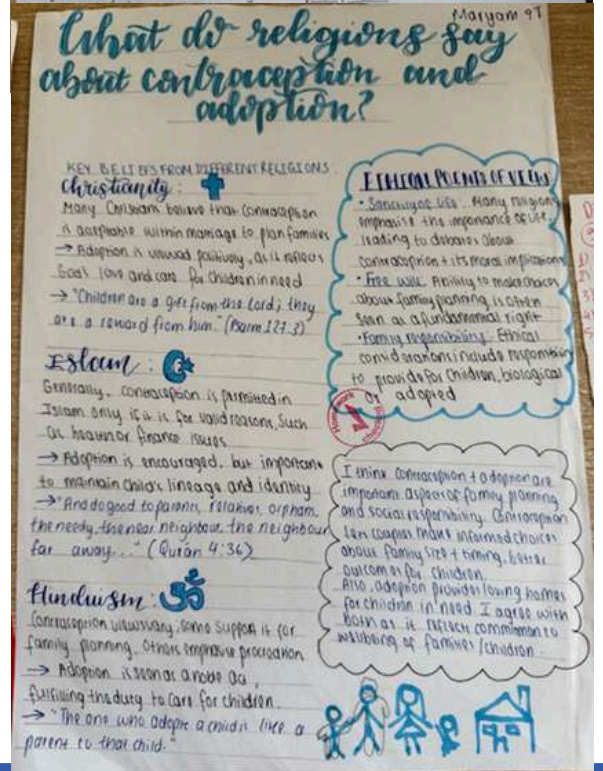 Maryam 9T
What do religions say
about contraception and
adoption?
KEY BELIEFS FROM DIFFERENT RELIGIONS.
Christianity:
Many Christians believe that contraception
is acceptable within marriage to plan families
→ Adoption is viewed positively, as it reflects
God's love and care for children in need
→ "Children are a gift from the Lord; they
are a reward from him." (Psalm 127:3)
Islam:
Generally, contraception is permitted in
Islam only if it is for valid reasons, such
as health or finance issues
→ Adoption is encouraged, but important
to maintain child's lineage and identity
→ "And do good to parents, relatives, orphans,
the needy, the near neighbour, the neighbour
far away..." (Quran 4:36)
Hinduism:
Contraception views vary, some support it for
family planning. Others emphasise procreation
→ Adoption is seen as a noble act,
fulfilling the duty to care for children.
→ "The one who adopts a child is like a
parent to that child."
ETHICAL POINTS OF VIEW
• Sanctity of life. Many religions
emphasise the importance of life,
leading to debates about
contraception + its moral implications
• Free will. Ability to make choices
about family planning is often
seen as a fundamental right
• Family responsibility. Ethical
considerations include responsibility
to provide for children, biological
or adopted
I think contraception + adoption are
important aspects of family planning
and social responsibility. Contraception
lets couples make informed choices
about family size + timing, better
outcomes for children.
Also, adoption provides loving homes
for children in need. I agree with
both as it reflects commitment to
wellbeing of families/children.